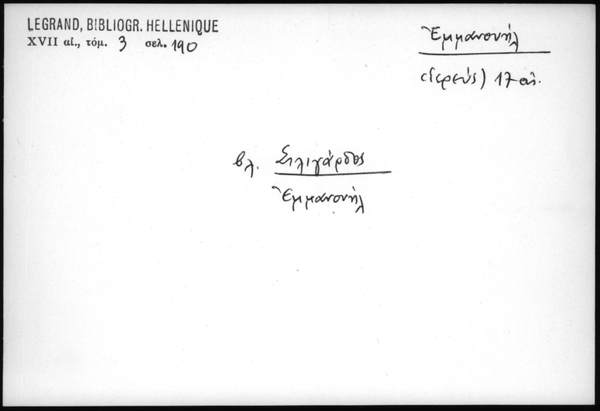 LEGRAND, BIBLIOGR. HELLENIQUE
XVII αἰ., τόμ. 3 σελ. 190
Ἐμμανουήλ
(ἱερεύς) 17 αἰ.
βλ. Σιλιγάρδος
Ἐμμανουήλ